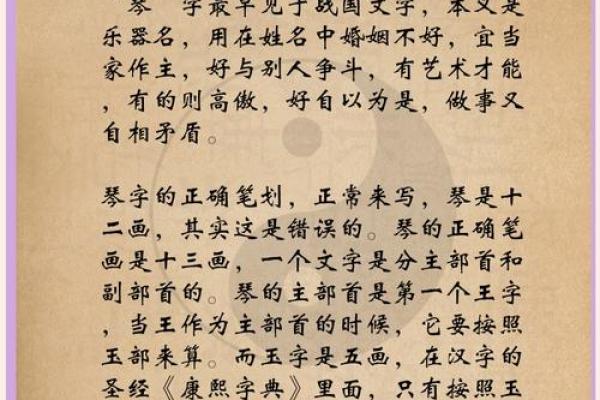 琴 字最早见于战国文字，本义是
乐器名，用在姓名中婚姻不好，宜当
家作主，好与别人争斗，有艺术才能
，有的则高傲，好自以为是，做事又
自相矛盾。
琴字的正确笔划，正常来写，琴是十
二画，其实这是错误的。琴的正确笔
画是十三画，一个文字是分主部首和
副部首的。琴的主部首是第一个王字
，当王作为主部首的时候，它要按照
玉部来算。而玉字是五画，在汉字的
圣经《康熙字典》里面，只有按照玉